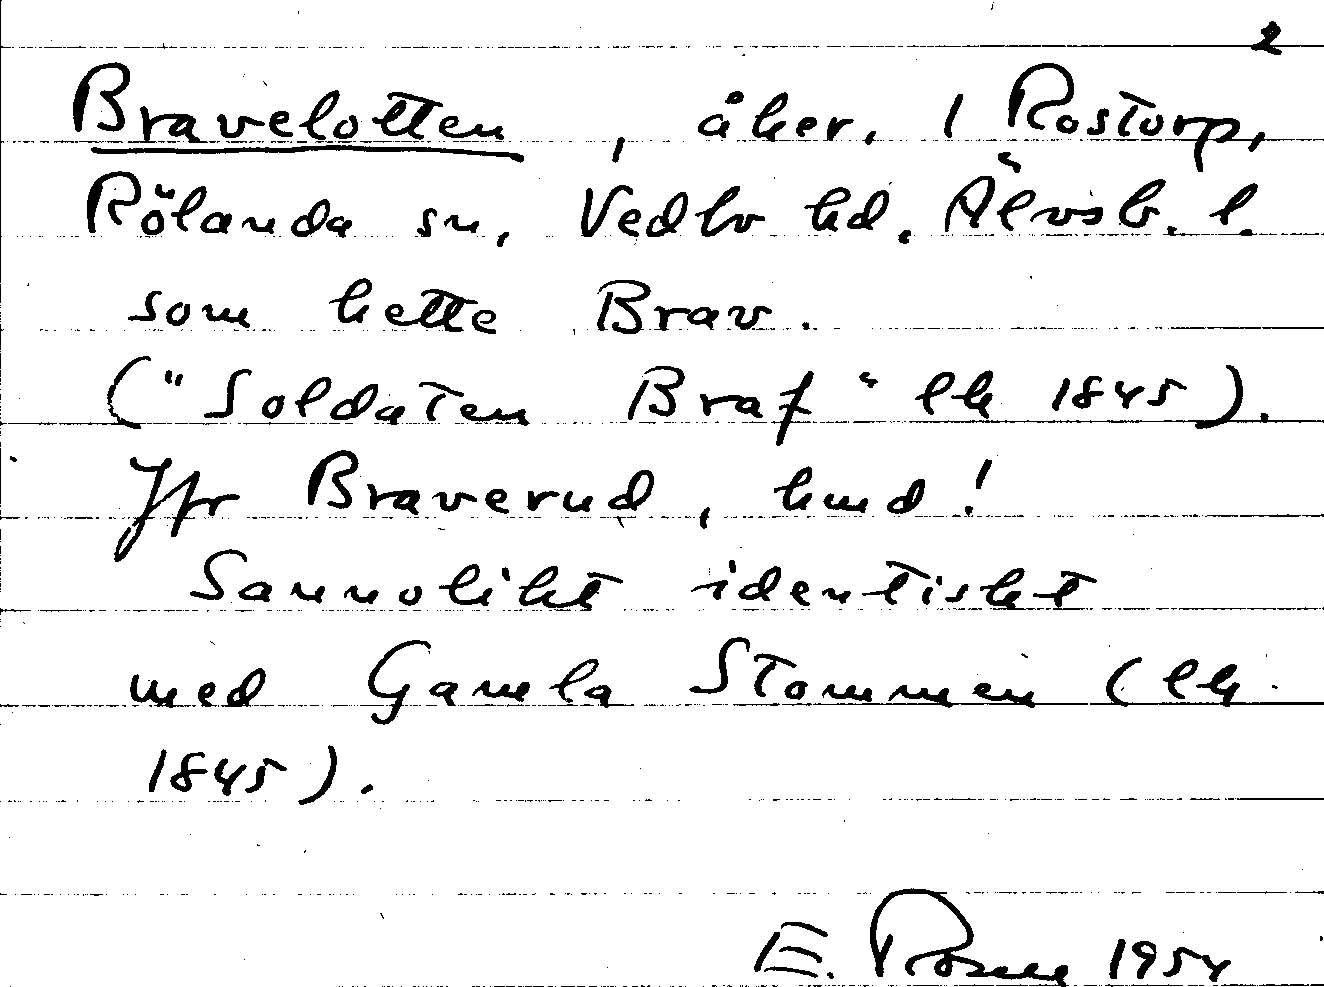 2
Bravelotten, åker. 1 Rostorp,
Rölanda sn, Vedbo hd. Älvsb. l.
som hette Brav.
("Soldaten Braf" lk 1845).
Jfr Braverud, hmd!
Sannolikt identiskt
med Gamla Stommen (lk
1845).
E. 1954